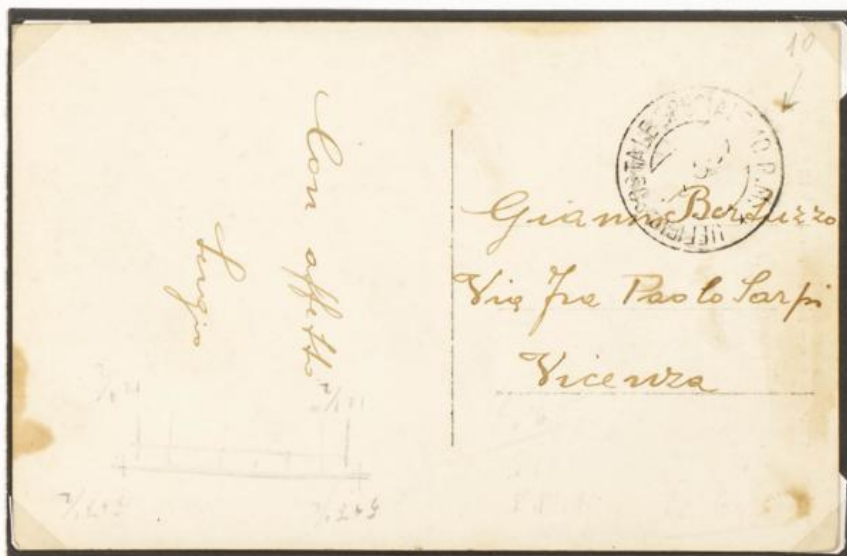 Con affetto
Sergio
10
UFFICIO POSTALE SPECIALE 10 P.M.
Gianni Bertuzzo
Via Fra Paolo Sarpi
Vicenza